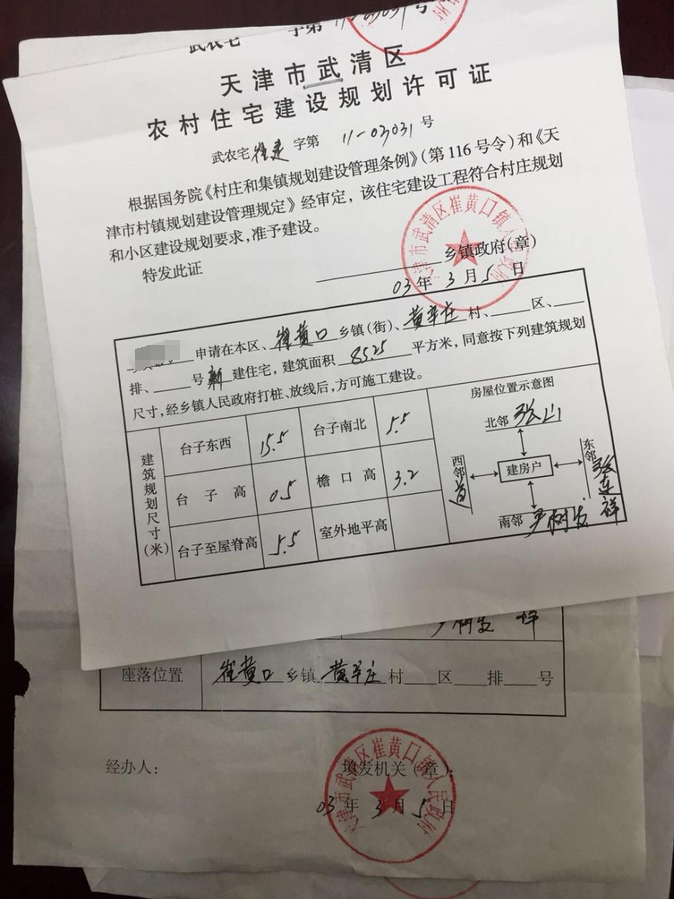 武农宅 字第 11-03031 号
天津市武清区
农村住宅建设规划许可证
武农宅崔建字第 11-03031 号
根据国务院《村庄和集镇规划建设管理条例》（第116号令）和《天
津市村镇规划建设管理规定》经审定，该住宅建设工程符合村庄规划
和小区建设规划要求，准予建设。
特发此证
乡镇政府（章）
03年3月5日
天津市武清区崔黄口镇人民政府
申请在本区、崔黄口乡镇（街）、黄辛庄村、 区、
排、 号新建住宅，建筑面积 85.25 平方米，同意按下列建筑规划
尺寸，经乡镇人民政府打桩、放线后，方可施工建设。
建筑规划尺寸（米）
台子东西 15.5 台子南北 5.5
台子高 0.5 檐口高 3.2
台子至屋脊高 5.5 室外地平高
房屋位置示意图
北邻
西邻 道
建房户
东邻 张连祥
南邻 尹树发
尹树发 祥
座落位置 崔黄口乡镇黄辛庄村 区 排 号
经办人： 填发机关（章）：
03年3月5日
天津市武清区崔黄口镇人民政府